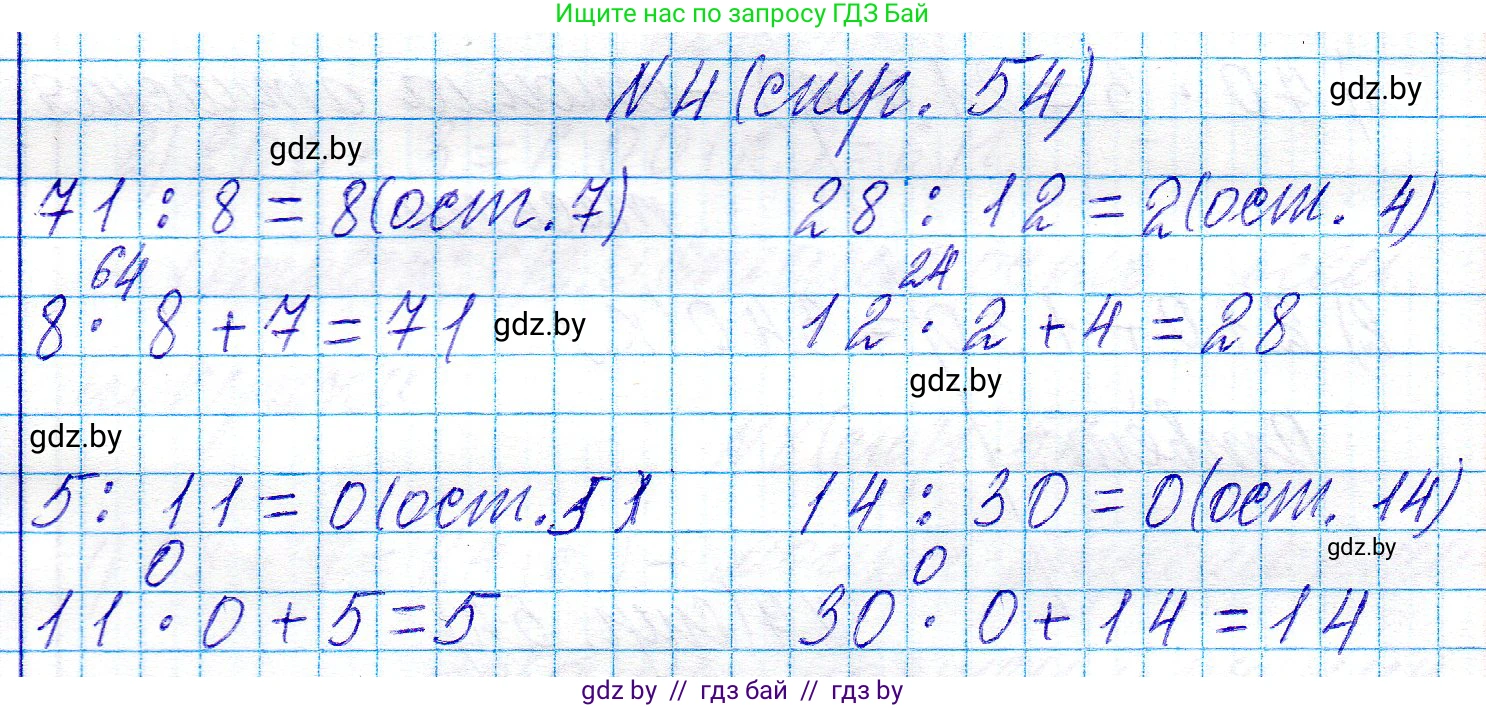 Ищите нас по запросу ГДЗ Бай
№4 (стр. 54)
gdz.by
gdz.by
71 : 8 = 8 (ост. 7) 28 : 12 = 2 (ост. 4)
64 24
8 · 8 + 7 = 71 gdz.by 12 · 2 + 4 = 28
gdz.by
gdz.by
5 : 11 = 0 (ост. 5) 14 : 30 = 0 (ост. 14)
0 0 gdz.by
11 · 0 + 5 = 5 30 · 0 + 14 = 14
gdz by // гдз бай // гдз by